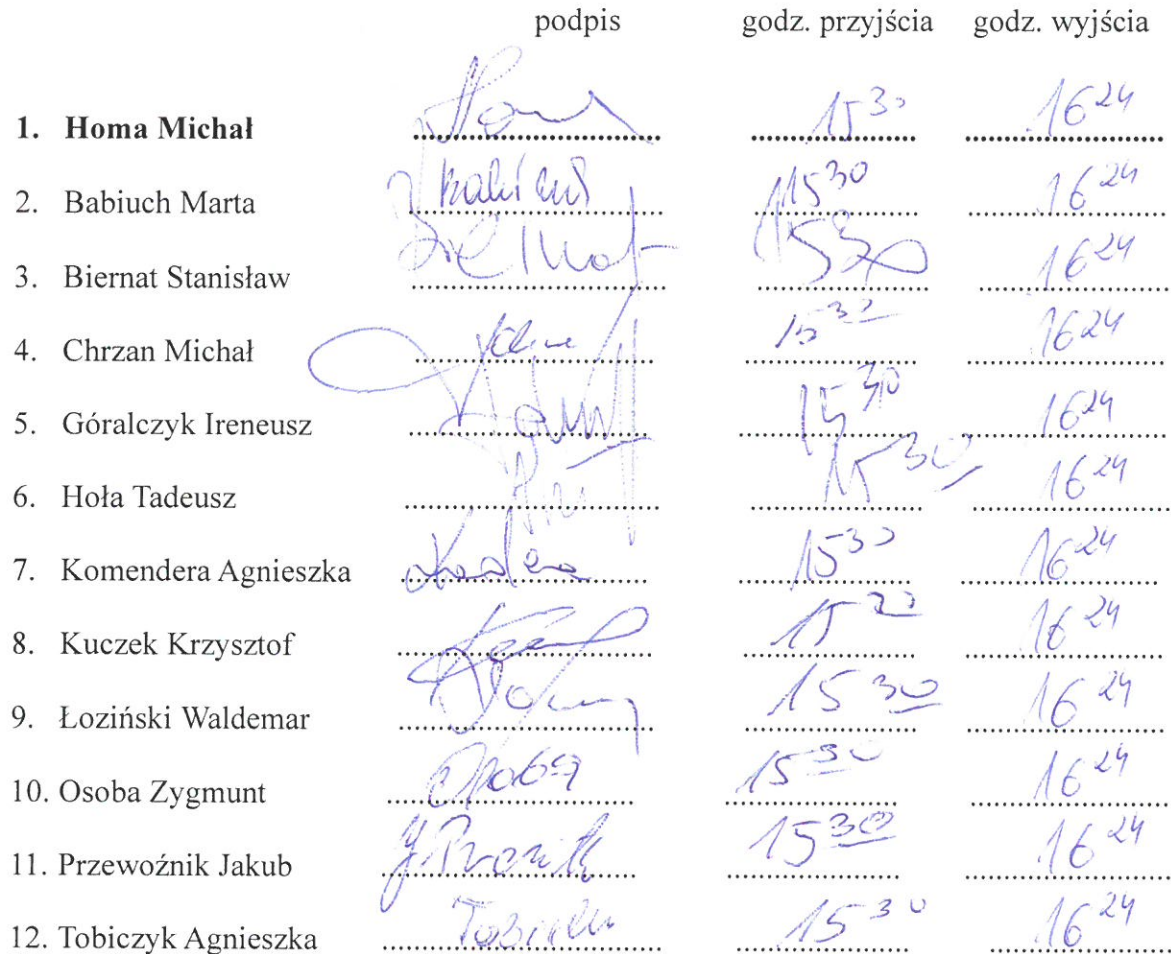 podpis godz. przyjścia godz. wyjścia
1. Homa Michał 15 30 16 24
2. Babiuch Marta 15 30 16 24
3. Biernat Stanisław Biernat 15 30 16 24
4. Chrzan Michał 15 30 16 24
5. Góralczyk Ireneusz 15 30 16 24
6. Hoła Tadeusz 15 30 16 24
7. Komendera Agnieszka 15 30 16 24
8. Kuczek Krzysztof 15 30 16 24
9. Łoziński Waldemar 15 30 16 24
10. Osoba Zygmunt Osoba 15 30 16 24
11. Przewoźnik Jakub 15 30 16 24
12. Tobiczyk Agnieszka 15 30 16 24